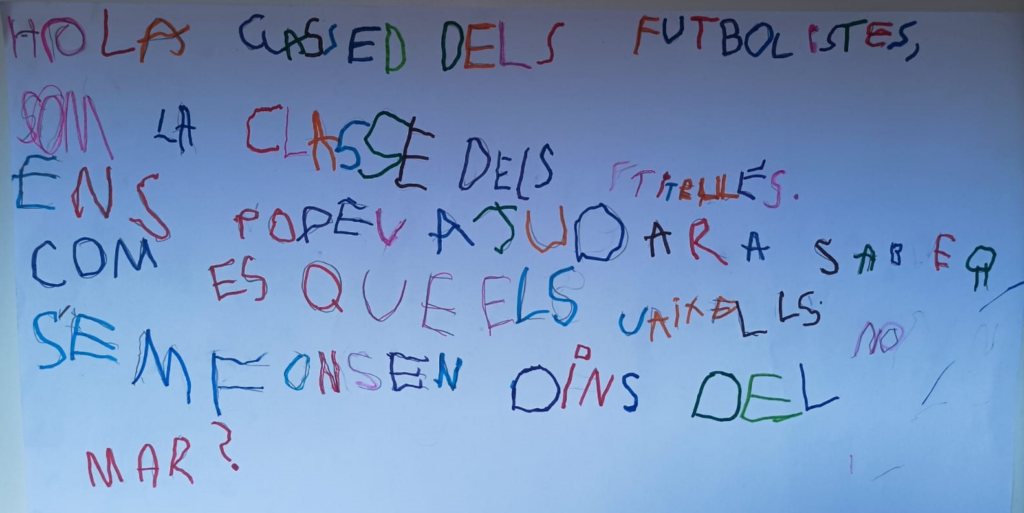 HOLA CLASSED DELS FUTBOLISTES,
SOM LA CLASSE DELS
ENS POPEU AJUDAR A SABER
COM ES QUE ELS VAIXELLS NO
S'EMFONSEN DINS DEL
MAR?